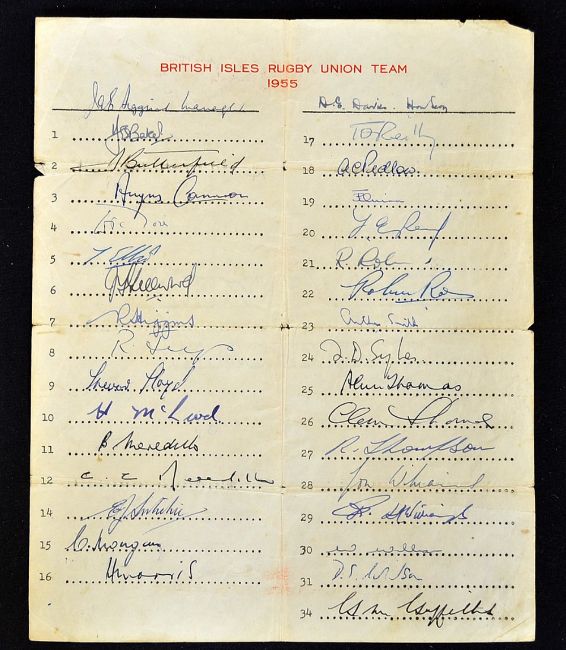 BRITISH ISLES RUGBY UNION TEAM
1955
Manager
D.E. Davies. Hon Sec
1 A G S Baker
2 J Butterfield
3 Angus Cameron
4
5 T Elliot
6 J T Greenwood
7 R Higgins
8 R Jeeps
9 Trevor Lloyd
10 H McLeod
11 B Meredith
12 C. C. Meredith
14
15 C. Morgan
16 H Morris
17 T Reid
18 A C Pedlow
19
20
21 R Robins
22 Robin Roe
23 Arthur Smith
24 F. D. Sykes
25 Alun Thomas
26 Clem Thomas
27 R. Thompson
28
29 R. H. Williams
30 W. Williams
31 D. S. Wilson
34 G M Griffiths